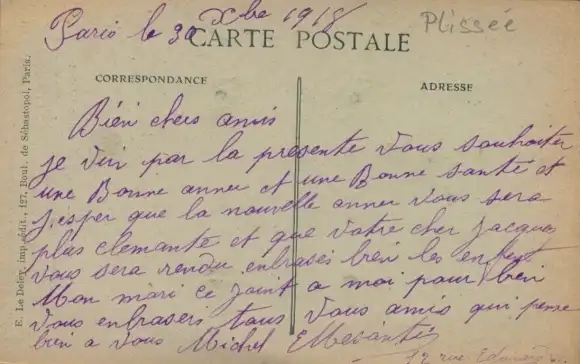 Paris le 30 Xbre 1918
Plissée
CARTE POSTALE
CORRESPONDANCE
ADRESSE
E. Le Deley, imp.-édit., 127, Boul. de Sébastopol, Paris.
Bien chers amis
je vien par la presente vous souhaiter
une Bonne anner et une Bonne santé et
j'esper que la nouvelle anner vous sera
plus clemante et que votre cher Jacques
vous sera rendu enbrasés bien les
Mon mari ce joint a moi pour bien
vous enbrasers tous vous amis qui pense
bien a vous Michel
12 rue